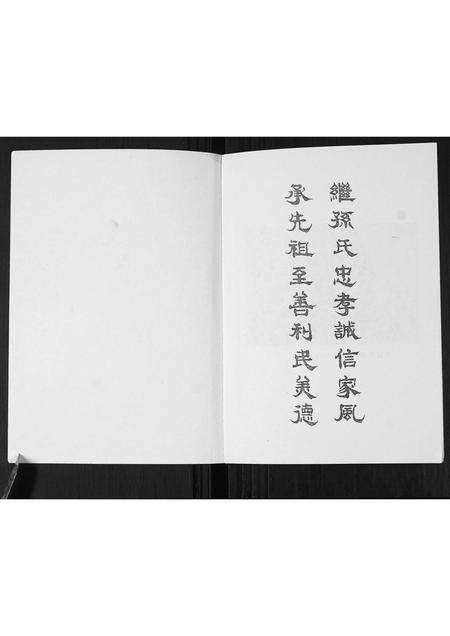 繼孫氏忠孝誠信家風
承先祖至善利民美德